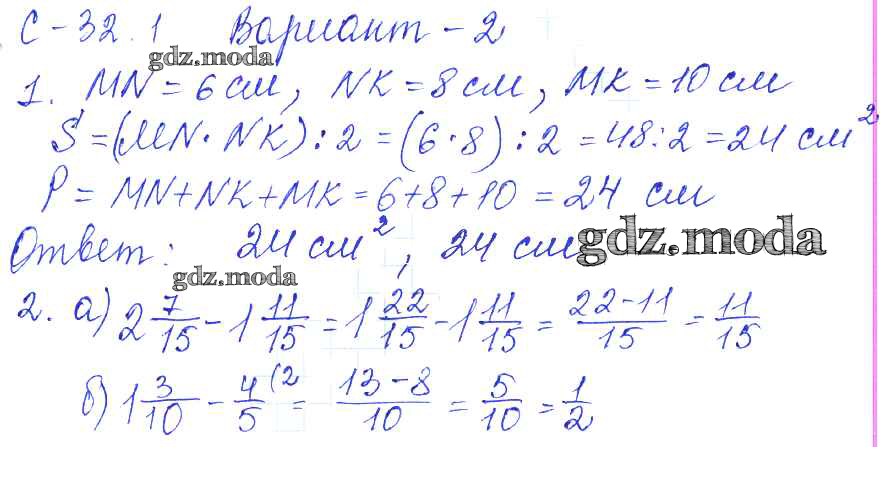 С-32.1 Вариант-2
gdz.moda
1. MN = 6 см, NK = 8 см, MK = 10 см
S = (MN · NK) : 2 = (6 · 8) : 2 = 48 : 2 = 24 см²
P = MN+NK+MK = 6+8+10 = 24 см
Ответ: 24 см², 24 см
gdz.moda
gdz.moda
2. а) 2 7/15 - 1 11/15 = 1 22/15 - 1 11/15 = 22-11/15 = 11/15
б) 1 3/10 - 4/5 (2 = 13-8/10 = 5/10 = 1/2